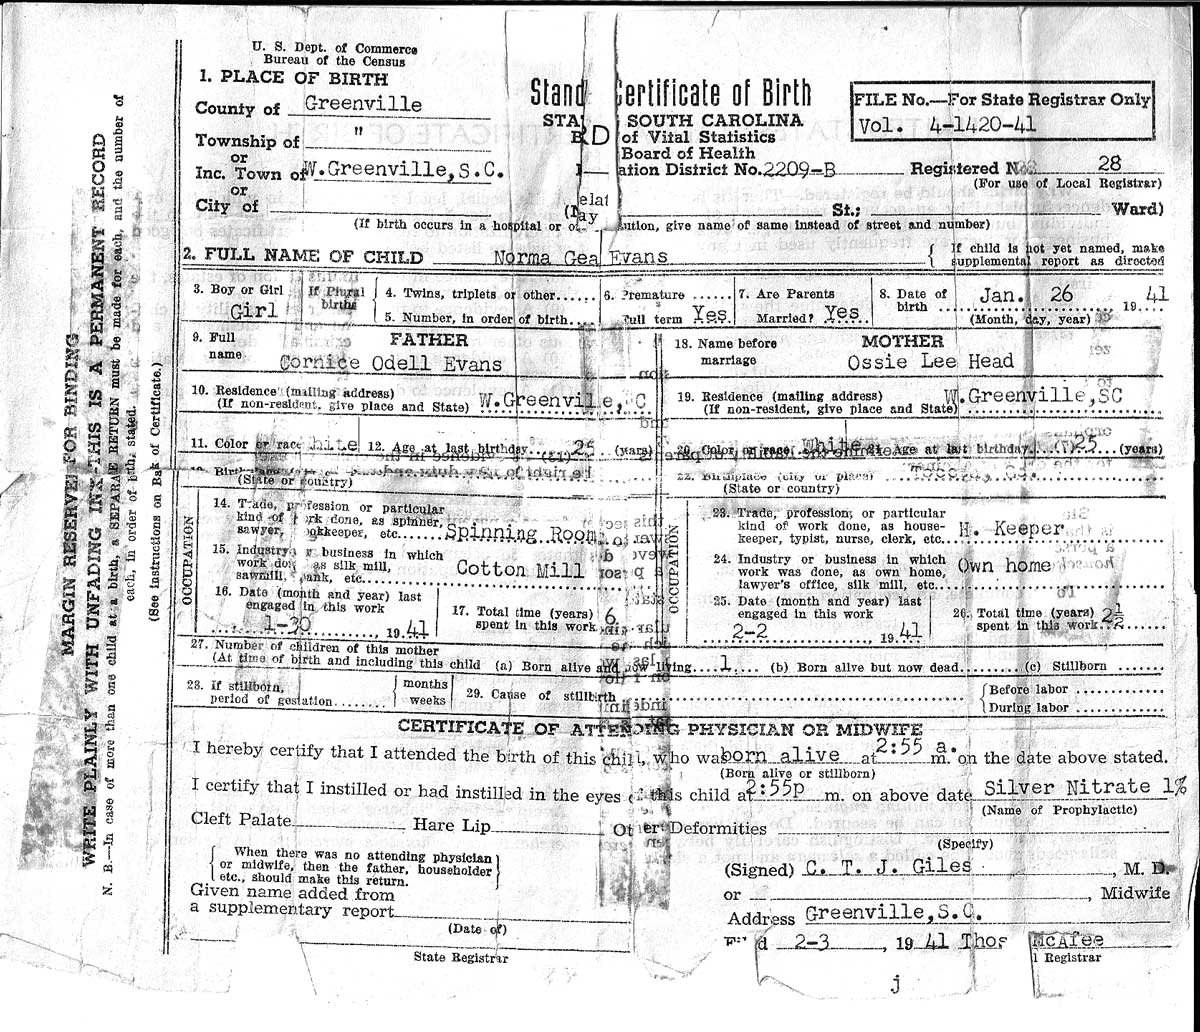 U. S. Dept. of Commerce
Bureau of the Census
1. PLACE OF BIRTH
County of Greenville
Township of "
or
Inc. Town of W.Greenville,S.C.
or
City of
Stand Certificate of Birth
STA SOUTH CAROLINA
B RD of Vital Statistics
Board of Health
ation District No. 2209-B
FILE No.—For State Registrar Only
Vol. 4-1420-41
Registered No. 28
(For use of Local Registrar)
elat
ay
St.; Ward)
(If birth occurs in a hospital or ution, give name of same instead of street and number)
2. FULL NAME OF CHILD Norma Gea Evans
If child is not yet named, make
supplemental report as directed
3. Boy or Girl
Girl
If Plural
births
4. Twins, triplets or other
5. Number, in order of birth
6. Premature
Full term Yes
7. Are Parents
Married? Yes
8. Date of
birth Jan. 26 1941
(Month, day, year)
9. Full
name
FATHER
Cornice Odell Evans
18. Name before
marriage
MOTHER
Ossie Lee Head
10. Residence (mailing address)
(If non-resident, give place and State) W.Greenville, C
19. Residence (mailing address)
(If non-resident, give place and State) W.Greenville,SC
11. Color or race hite 12. Age at last birthday 25 (years)
20. Color or race White 21. Age at last birthday 25 (years)
(State or country)
22. Birthplace (city or place)
(State or country)
OCCUPATION
14. Trade, profession or particular
kind of work done, as spinner,
sawyer, bookkeeper, etc. Spinning Room
15. Industry or business in which
work done, as silk mill,
sawmill, bank, etc. Cotton Mill
16. Date (month and year) last
engaged in this work
1-30, 1941
17. Total time (years)
spent in this work 6
OCCUPATION
23. Trade, profession, or particular
kind of work done, as house-
keeper, typist, nurse, clerk, etc. H. Keeper
24. Industry or business in which
work was done, as own home,
lawyer's office, silk mill, etc. Own home
25. Date (month and year) last
engaged in this work
2-2, 1941
26. Total time (years)
spent in this work 2½
27. Number of children of this mother
(At time of birth and including this child (a) Born alive and now living 1 (b) Born alive but now dead (c) Stillborn
28. If stillborn,
period of gestation
months
weeks
29. Cause of stillbirth
Before labor
During labor
CERTIFICATE OF ATTENDING PHYSICIAN OR MIDWIFE
I hereby certify that I attended the birth of this child, who was born alive at 2:55 a. m. on the date above stated.
(Born alive or stillborn)
I certify that I instilled or had instilled in the eyes of this child at 2:55p m. on above date Silver Nitrate 1%
(Name of Prophylactic)
Cleft Palate Hare Lip Other Deformities
(Specify)
When there was no attending physician
or midwife, then the father, householder
etc., should make this return.
Given name added from
a supplementary report
(Date of)
State Registrar
(Signed) C. T. J. Giles, M. D.
or , Midwife
Address Greenville,S.C.
2-3, 1941 Thos McAfee
l Registrar
j
MARGIN RESERVED FOR BINDING
WRITE PLAINLY WITH UNFADING INK—THIS IS A PERMANENT RECORD
N. B.—In case of more than one child at a birth, a SEPARATE RETURN must be made for each, and the number of
each, in order of birth, stated.
(See instructions on Back of Certificate.)